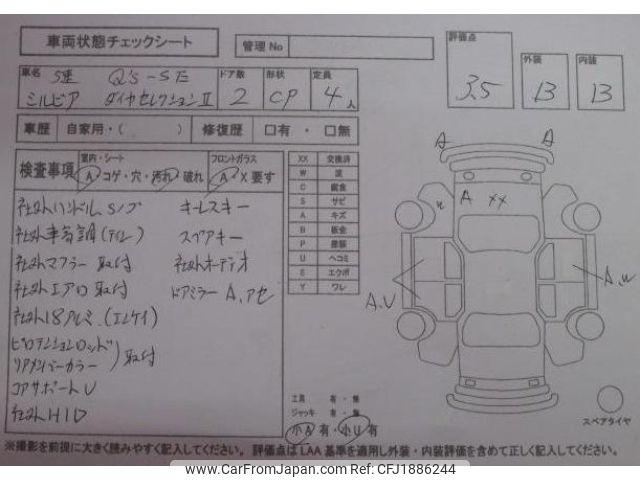 車両状態チェックシート
管理No
評価点
3.5
外装
B
内装
B
車名
S雪 Q's-SE
シルビア ダイヤセレクションII
ドア数
2
形状
CP
定員
4人
車歴 自家用・( ) 修復歴 □有・□無
検査事項
室内・シート
A コゲ・穴・汚れ 破れ
フロントガラス
A X要す
XX 交換済
W 波
C 腐食
S サビ
A キズ
B 板金
P 塗装
U ヘコミ
E エクボ
Y ワレ
社外ハンドル Sノブ キーレスキー
社外車高調(テイン) スペアキー
社外マフラー 取付 社外オーディオ
社外エアロ 取付 ドアミラー A、アセ
社外18アルミ (エンケイ)
ピロテンションロッド
リアメンバーカラー
取付
コアサポート U
社外HID
A
A
A XX
A,U
A,U
工具 有・無
ジャッキ 有・無
小A 有・小U 有
スペアタイヤ
※撮影を前提に大きく読みやすく記入してください。 評価点はLAA基準を適用し外装・内装評価を含めて正しく記入してください。
www.CarFromJapan.com - CFJ1886244